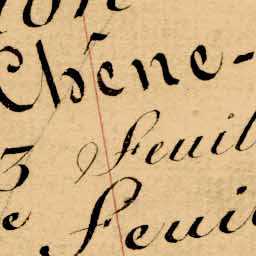 Chene-
3 Feuil
e Feuil